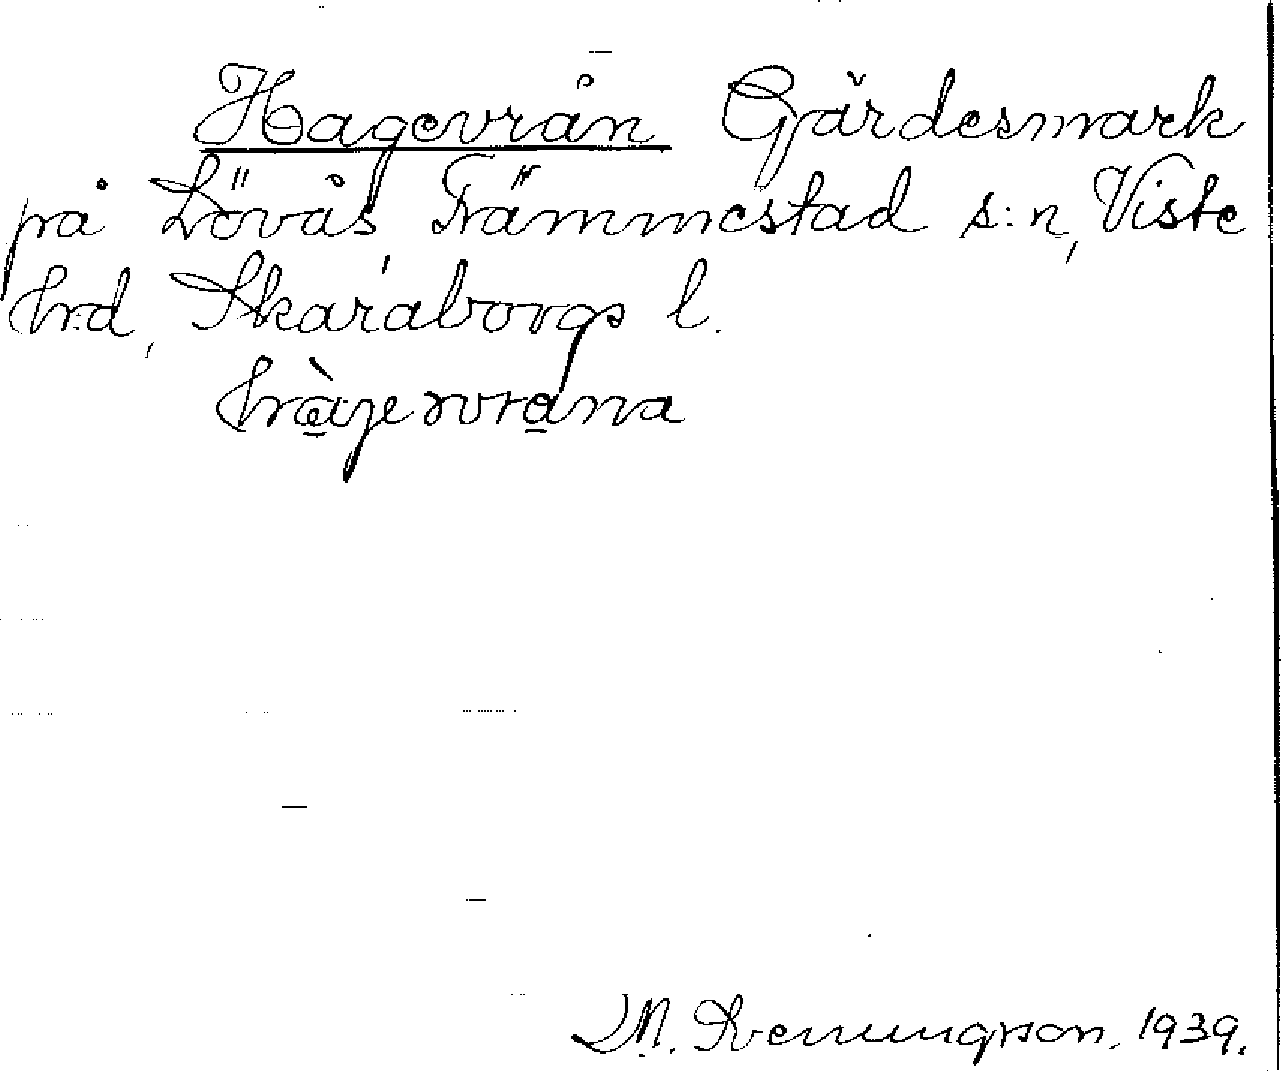 Hagevrån Gärdesmark
på Lövås, Främmestad s:n, Viste
hrd, Skaraborgs l.
M. Svenningson. 1939.